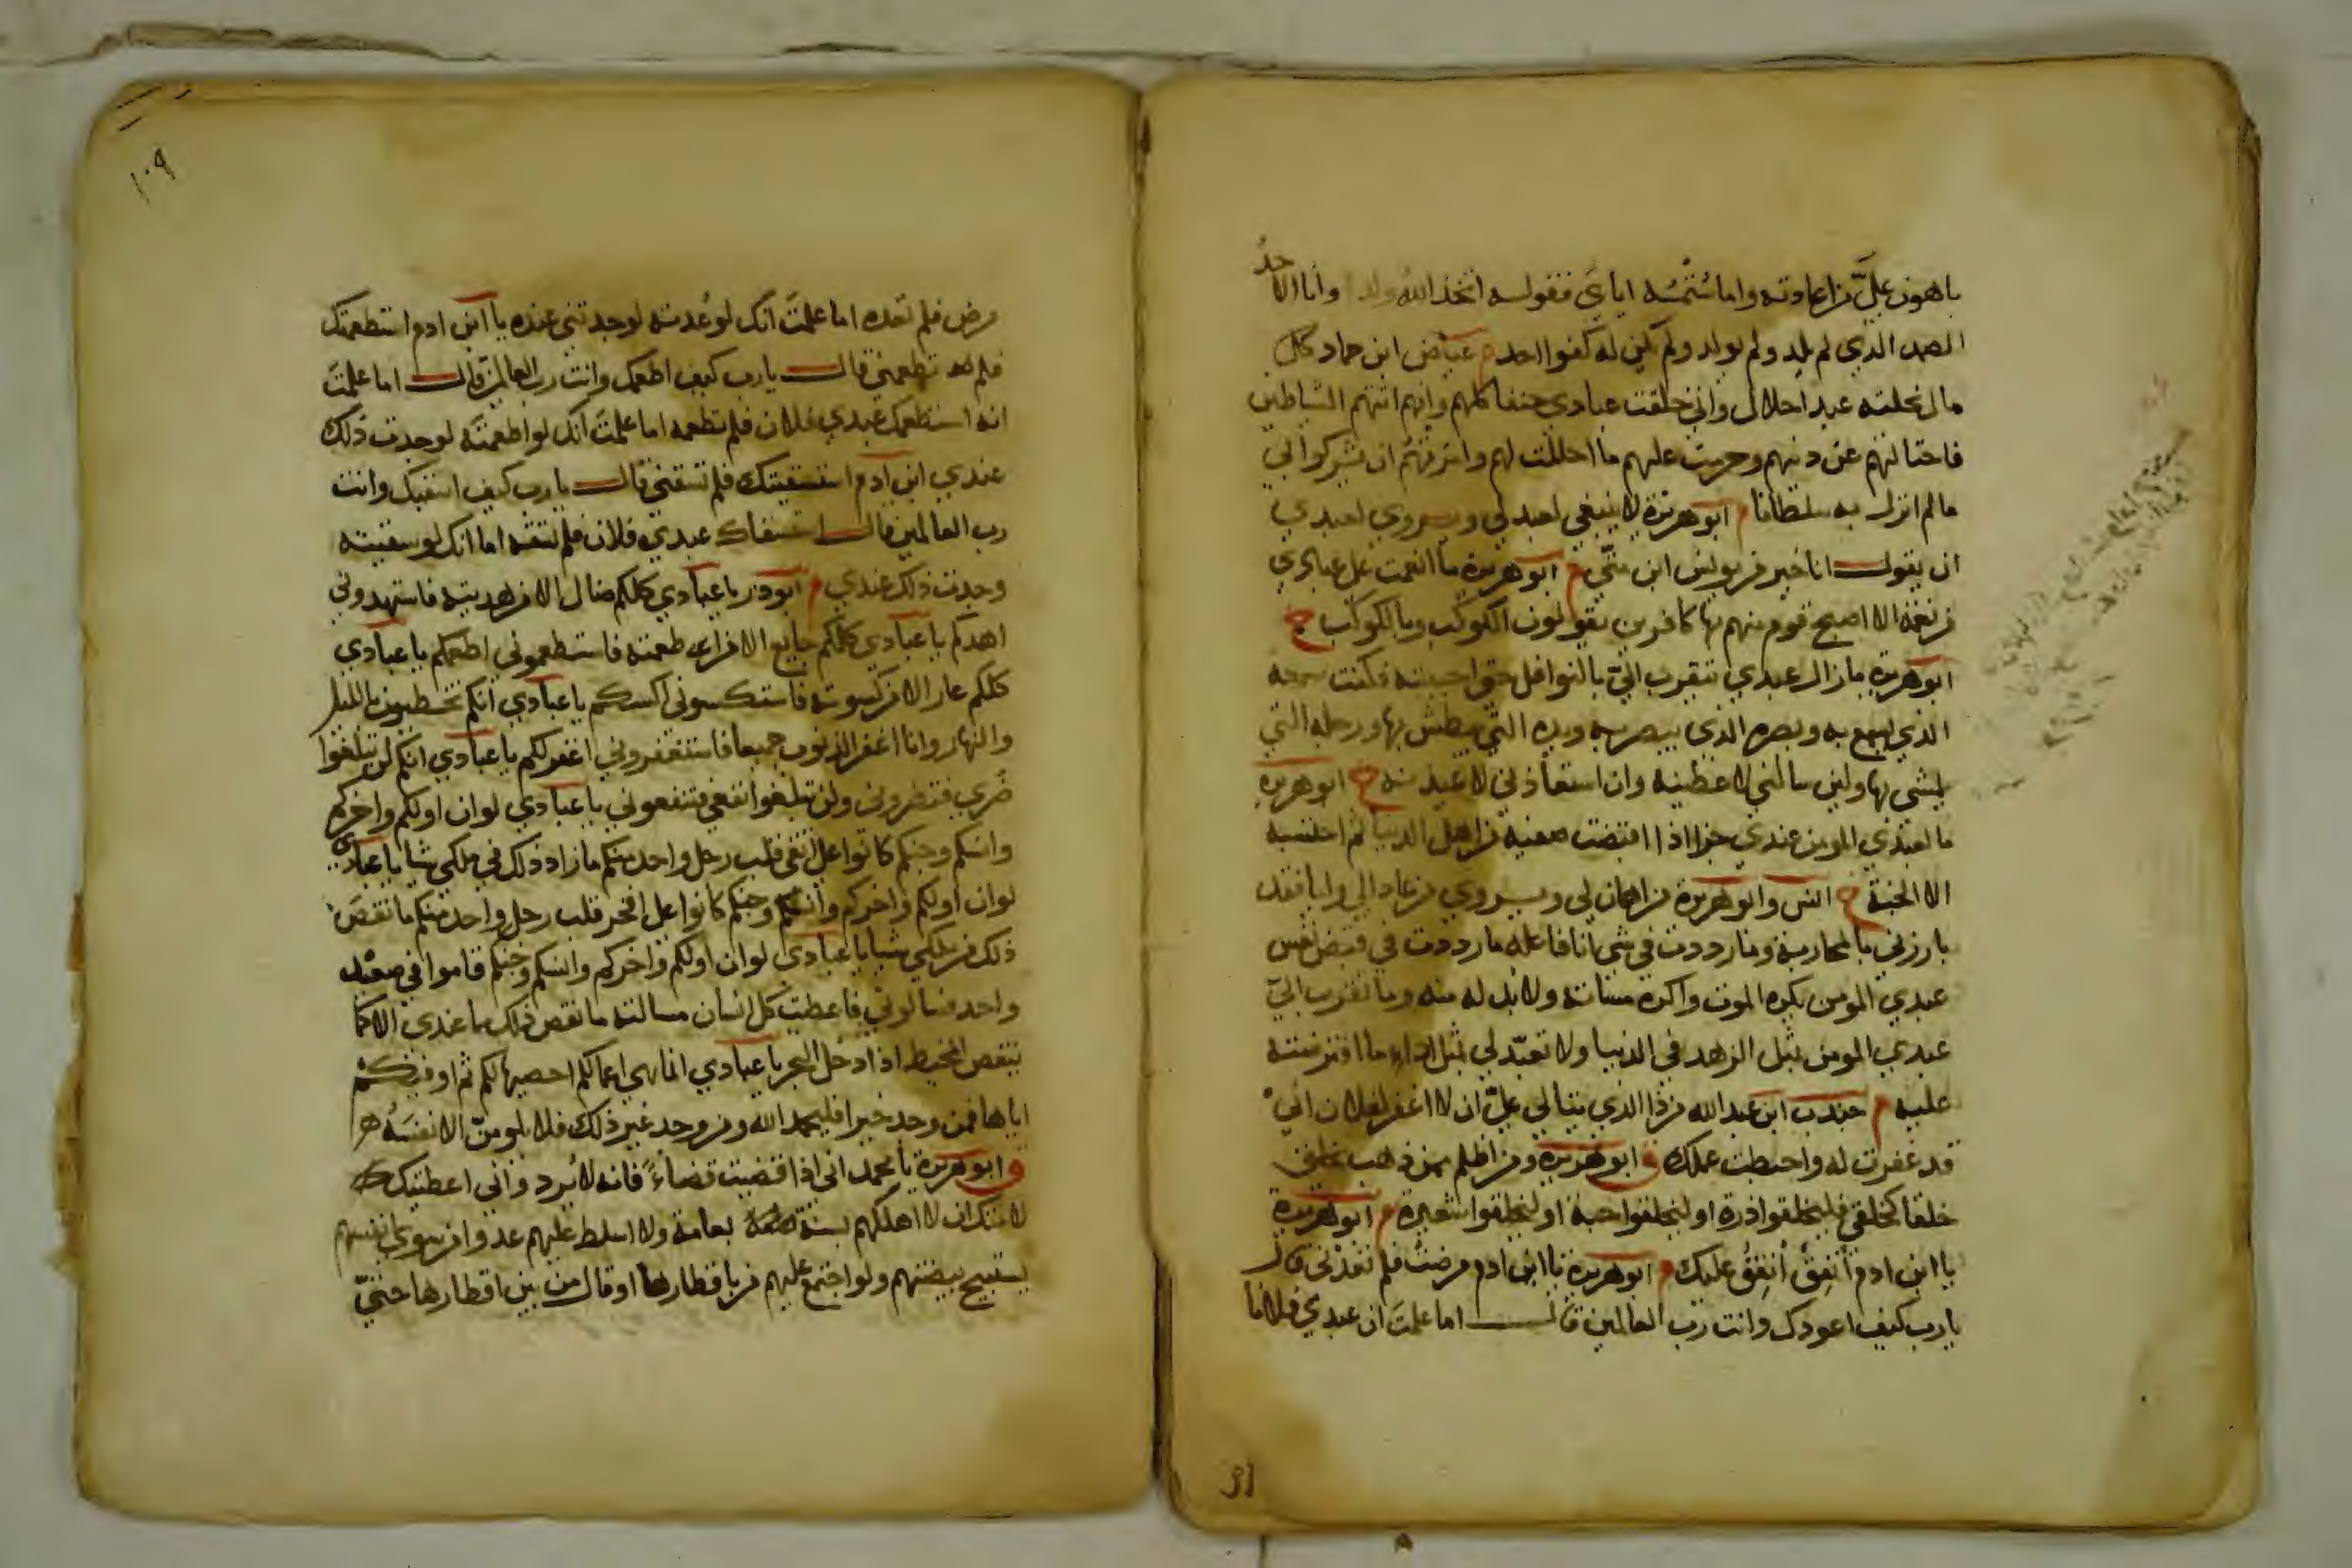 باهون علي من اعادته واما شتمه اياي فقوله اتخذ الله ولدا وانا الاحد
الصمد الذي لم يلد ولم يولد ولم يكن له كفوا احد م عياض ابن حماد كل
مال نحلته عبدا حلال واني خلقت عبادي حنفا كلهم وانهم اتتهم الشياطين
فاحتالتهم عن دينهم وحرمت عليهم ما احللت لهم وامرتهم ان يشركوا بي
ما لم انزل به سلطانا م ابو هريرة لا ينبغي لعبد لي ويروي لعبدي
ان يقول انا خير من يونس ابن متى م ابو هريرة ما انعمت على عبادي
من نعمة الا اصبح قوم منهم بها كافرين يقولون الكوكب وبالكوكب خ
ابو هريرة ما زال عبدي يتقرب الي بالنوافل حتى احببته فكنت سمعه
الذي يسمع به وبصره الذي يبصر به ويده التي يبطش بها ورجله التي
يمشي بها ولين سالني لاعطينه وان استعاذني لاعيذنه خ ابو هريرة
ما لعبدي المومن عندي جزا اذا اقبضت صفيه من اهل الدنيا ثم احتسبه
الا الجنة خ انس وابو هريرة من اهان لي ويروي من عادا لي وليا فقد
بارزني بالمحاربة وما رددت في شي انا فاعله ما رددت في قبض نفس
عبدي المومن يكره الموت واكره مساته ولا بد له منه وما تقرب الي
عبدي المومن بمثل الزهد في الدنيا ولا تعبد لي بمثل اداء ما افترضته
عليه م جندب ابن عبد الله من ذا الذي يتالى علي ان لا اغفر لفلان اني
قد غفرت له واحبطت عملك ق ابو هريرة ومن اظلم ممن ذهب يخلق
خلقا كخلقي فليخلقوا ذرة او ليخلقوا حبة او ليخلقوا شعيرة م ابو هريرة
يا ابن ادم أنفق أنفق عليك م ابو هريرة يا ابن ادم مرضت فلم تعدني قال
يا رب كيف اعودك وانت رب العالمين قال اما علمت ان عبدي فلانا
31
١٠٩
مرض فلم تعده اما علمت انك لو عدته لوجدتني عنده يا ابن ادم استطعمتك
فلم تطعمني قال يا رب كيف اطعمك وانت رب العالمين قال اما علمت
انه استطعمك عبدي فلان فلم تطعمه اما علمت انك لو اطعمته لوجدت ذلك
عندي ابن ادم استسقيتك فلم تسقني قال يا رب كيف اسقيك وانت
رب العالمين قال استسقاك عبدي فلان فلم تسقه اما انك لو سقيته
وجدت ذلك عندي م ابو ذر يا عبادي كلكم ضال الا من هديته فاستهدوني
اهدكم يا عبادي كلكم جايع الا من اطعمته فاستطعموني اطعمكم يا عبادي
كلكم عار الا من كسوته فاستكسوني اكسكم يا عبادي انكم تخطيون بالليل
والنهار وانا اغفر الذنوب جميعا فاستغفروني اغفر لكم يا عبادي انكم لن تبلغوا
ضري فتضروني ولن تبلغوا نفعي فتنفعوني يا عبادي لو ان اولكم واخركم
وانسكم وجنكم كانوا على اتقى قلب رجل واحد منكم ما زاد ذلك في ملكي شيا يا عبادي
لو ان اولكم واخركم وانسكم وجنكم كانوا على افجر قلب رجل واحد منكم ما نقص
ذلك من ملكي شيا يا عبادي لو ان اولكم واخركم وانسكم وجنكم قاموا في صعيد
واحد فسالوني فاعطيت كل انسان مسالته ما نقص ذلك مما عندي الا كما
ينقص المخيط اذا ادخل البحر يا عبادي انما هي اعمالكم احصيها لكم ثم اوفيكم
اياها فمن وجد خيرا فليحمد الله ومن وجد غير ذلك فلا يلومن الا نفسه
ق ابو هريرة يا محمد اني اذا قضيت قضاءً فانه لا يرد واني اعطيتك
لامتك ان لا اهلكهم بسنة بعامة ولا اسلط عليهم عدوا من سوى انفسهم
يستبيح بيضتهم ولو اجتمع عليهم من باقطارها او قال من بين اقطارها حتى